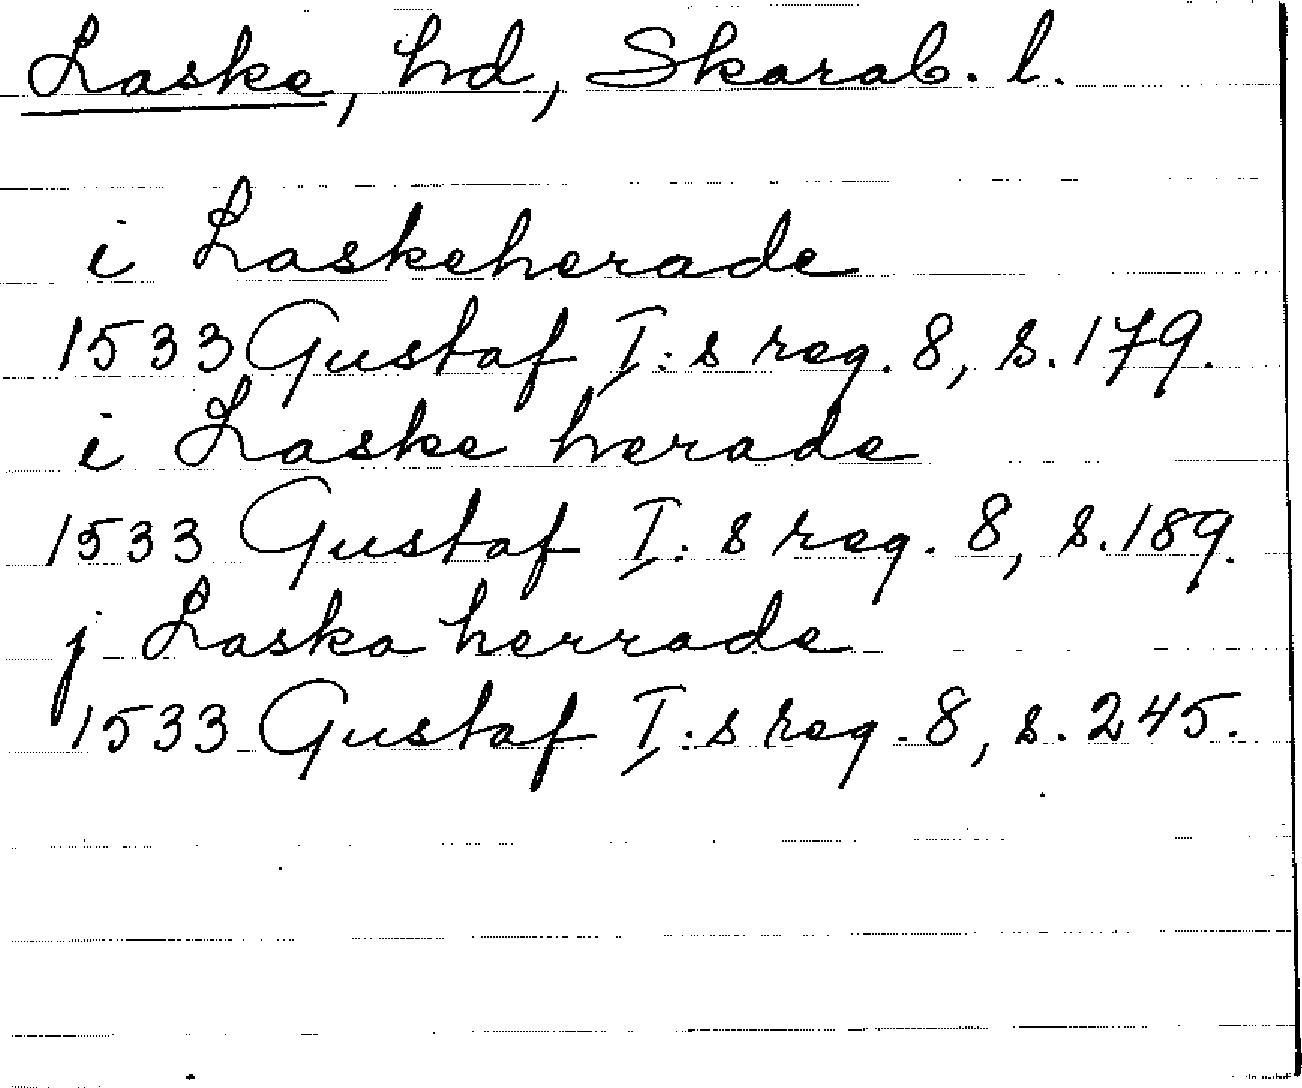 Laske, hd, Skarab. l.
i Laskeherade
1533 Gustaf I:s reg. 8, s. 179.
i Laske herade
1533 Gustaf I:s reg. 8, s. 189.
j Laska herrade
1533 Gustaf I:s reg. 8, s. 245.